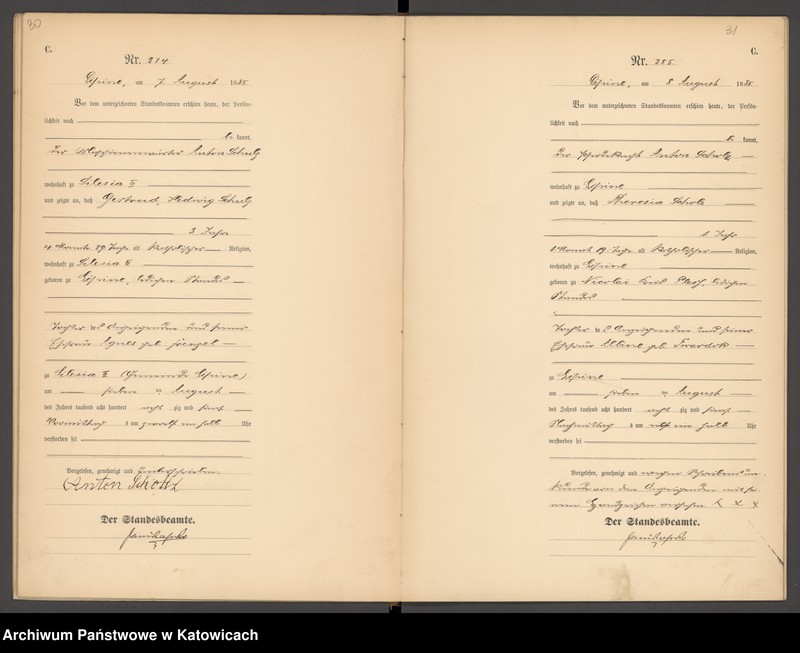 30
C.
Nr. 284
Lipine, am 7. August 1885
Vor dem unterzeichneten Standesbeamten erschien heute, der Persön-
lichkeit nach
be kannt,
der Anton Scholz
wohnhaft zu Silesia II
und zeigte an, daß Gertrud, Hedwig Scholz
3 Jahre
4 Monate 29 Tage alt katholischer Religion,
wohnhaft zu Silesia II
geboren zu Lipine, ledigen Standes
Tochter des Anzeigenden und seiner
Ehefrau Agnes geb.
zu Silesia II (Gemeinde Lipine)
am sieben ten August
des Jahres tausend acht hundert acht zig und fünf
Vormittag s um zwölf ein halb Uhr
verstorben sei
Vorgelesen, genehmigt und unterschrieben
Anton Scholz
Der Standesbeamte.
31
C.
Nr. 285
Lipine, am 8 August 1885
Vor dem unterzeichneten Standesbeamten erschien heute, der Persön-
lichkeit nach
be kannt,
der Anton Scholz
wohnhaft zu Lipine
und zeigte an, daß Theresia Scholz
1 Jahr
1 Monat 19 Tage alt katholischer Religion,
wohnhaft zu Lipine
geboren zu Nicolai Kreis Pleß, ledigen
Standes
Tochter des Anzeigenden und seiner
Ehefrau Albine geb. Twardok
zu Lipine
am sieben ten August
des Jahres tausend acht hundert acht zig und fünf
Nachmittag s um elf ein halb Uhr
verstorben sei
Vorgelesen, genehmigt und wegen Schreibensun-
kunde von dem Anzeigenden mit sei-
nem Handzeichen versehen X X X
Der Standesbeamte.
Archiwum Państwowe w Katowicach